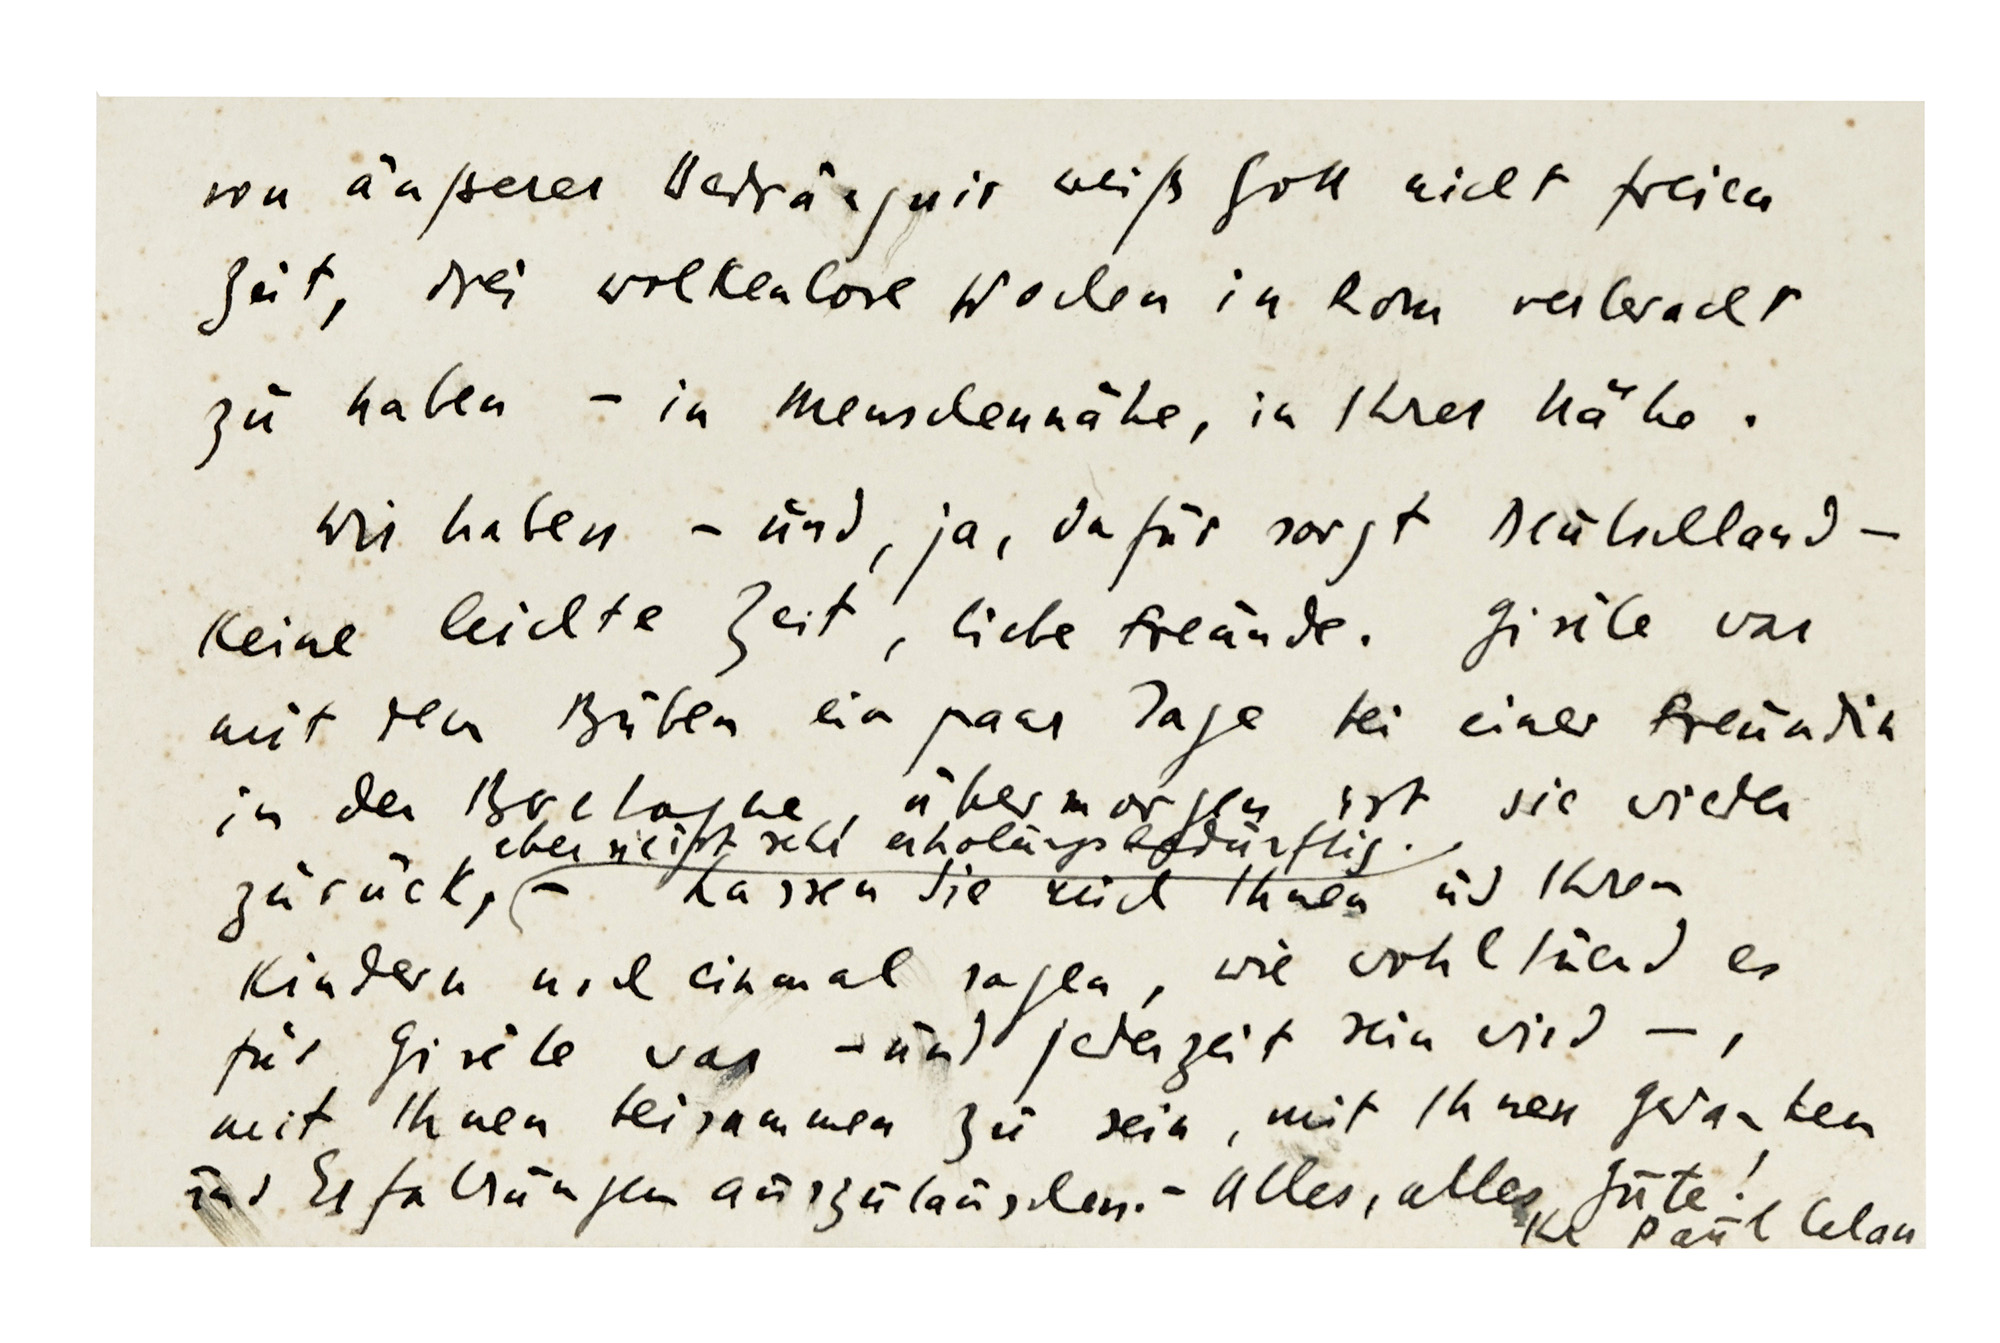 von äußerer Bedrängnis weiß Gott nicht freien
Zeit, drei wolkenlose Wochen in Rom verbracht
zu haben – in Menschennähe, in Ihrer Nähe.
Wir haben – und, ja, dafür sorgt Deutschland –
keine leichte Zeit, liebe Freunde. Gisèle war
mit dem Buben ein paar Tage bei einer Freundin
in der Bretagne, übermorgen ist sie wieder
aber sie ist sehr erholungsbedürftig.
zurück, – Lassen Sie mich Ihnen und Ihren
Kindern noch einmal sagen, wie wohltuend es
für Gisèle war – und jederzeit sein wird –,
mit Ihnen beisammen zu sein, mit Ihnen Gedanken
und Erfahrungen auszutauschen. – Alles, alles Gute!
Ihr Paul Celan